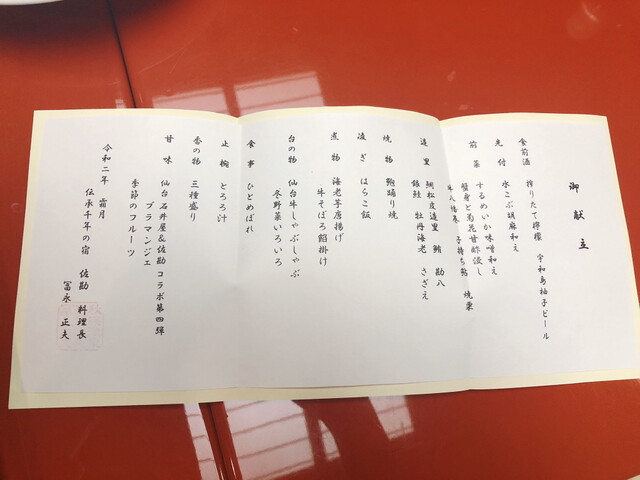 御献立
食前酒 搾りたて檸檬 宇和島柚子ビール
先付 水こぶ胡麻和え
前菜 するめいか味噌和え
蟹身と菊花甘酢流し
八幡巻 子持ち鮎 焼栗
造里 鯛松皮造里 鮪 勘八
銀鮭 牡丹海老 さざえ
焼物 鮑踊り焼
凌ぎ はらこ飯
煮物 海老芋唐揚げ
牛そぼろ餡掛け
台の物 仙台牛しゃぶしゃぶ
冬野菜いろいろ
食事 ひとめぼれ
止椀 とろろ汁
香の物 三種盛り
甘味 仙台石井屋&佐勘コラボ第四弾
ブラマンジェ
季節のフルーツ
令和二年 霜月
伝承千年の宿 佐勘 料理長
冨永 正夫